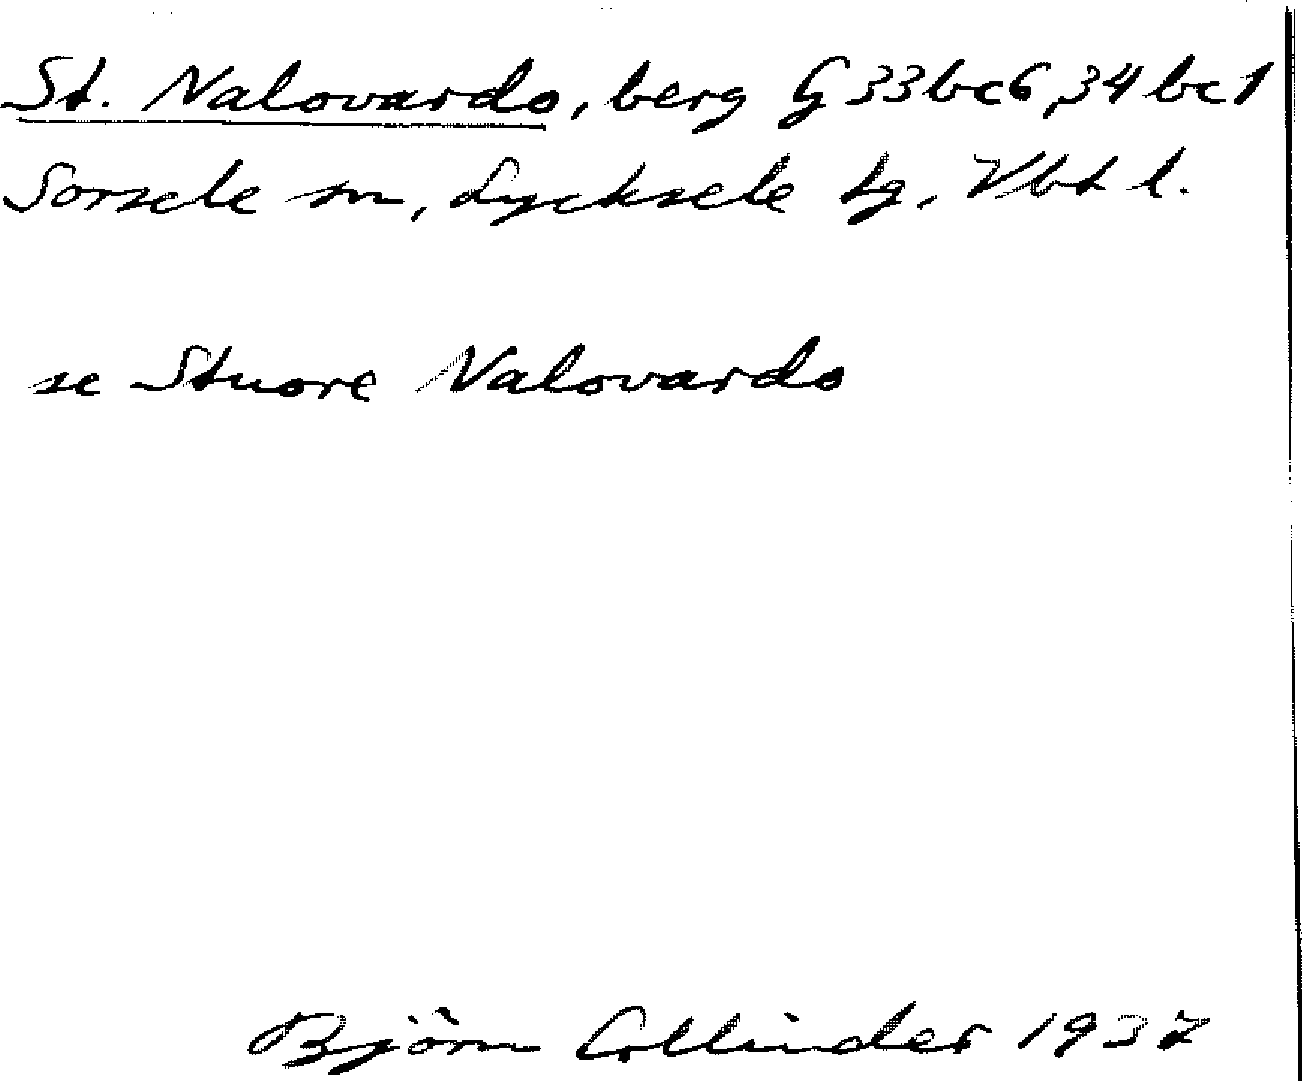 St. Nalovardo, berg G 33 bc6, 34 bc1
Sorsele sn, Lycksele lg, Vbt l.
se Stuore Nalovardo
Björn Collinder 1937